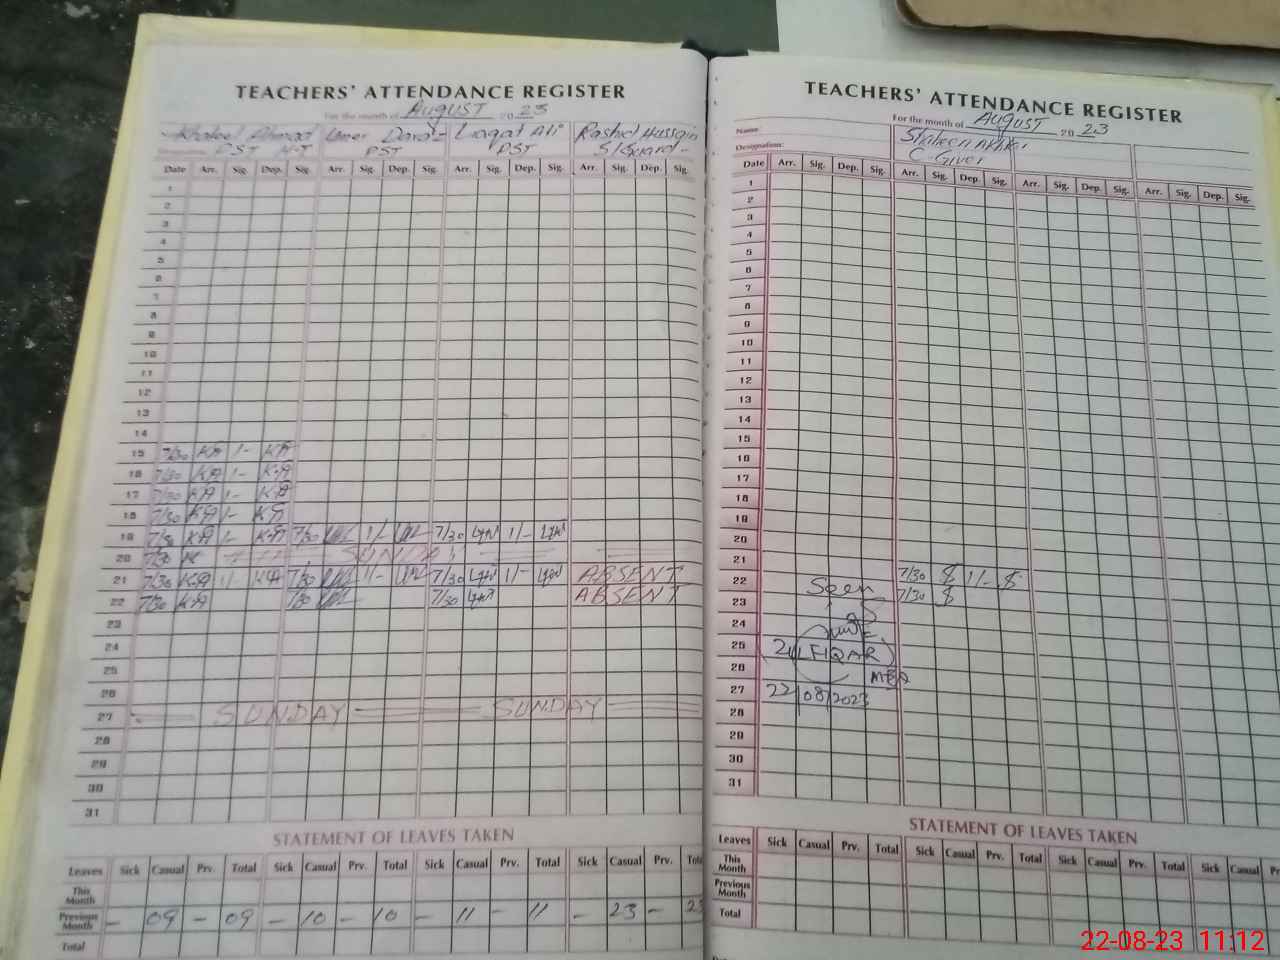 TEACHERS' ATTENDANCE REGISTER
For the month of AUGUST 20 23
Khaleel Ahmad Umer Daraz Liaqat Ali Rashid Hussain
PST PST PST S/Guard
Date Arr. Sig. Dep. Sig. Arr. Sig. Dep. Sig. Arr. Sig. Dep. Sig. Arr. Sig. Dep. Sig.
1
2
3
4
5
6
7
8
9
10
11
12
13
14
15 7/30 KA 1- KA
16 7/30 KA 1- KA
17 7/30 KA 1- KA
18 7/30 KA 1- KA
19 7/30 KA 1- KA 7/30 1/- 7/30 1/-
20 7/30 K SUNDAY
21 7/30 KA 1/- KA 7/30 1/- 7/30 1/- ABSENT
22 7/30 KA 7/30 7/30 ABSENT
23
24
25
26
27 SUNDAY SUNDAY
28
29
30
31
STATEMENT OF LEAVES TAKEN
Leaves Sick Casual Prv. Total Sick Casual Prv. Total Sick Casual Prv. Total Sick Casual Prv. Total
This Month
Previous Month - 09 - 09 - 10 - 10 - 11 - 11 - 23 - 23
Total
TEACHERS' ATTENDANCE REGISTER
For the month of AUGUST 20 23
Name: Shaheen Akhtar
Designation: C-Giver
Date Arr. Sig. Dep. Sig. Arr. Sig. Dep. Sig. Arr. Sig. Dep. Sig. Arr. Sig. Dep. Sig.
1
2
3
4
5
6
7
8
9
10
11
12
13
14
15
16
17
18
19
20
21
22 Seen 7/30 $ 1/- $
23 7/30 $
24
25 ZULFIQAR
26 MEA
27 22/08/2023
28
29
30
31
STATEMENT OF LEAVES TAKEN
Leaves Sick Casual Prv. Total Sick Casual Prv. Total Sick Casual Prv. Total Sick Casual
This Month
Previous Month
Total
22-08-23 11:12